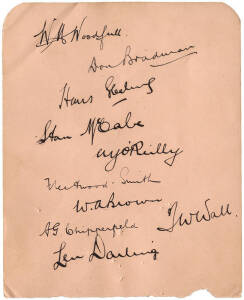 W M Woodfull
Don Bradman
Hans Ebeling
Stan McCabe
WJO'Reilly
Fleetwood-Smith
W.A Brown
AG Chipperfield
T W Wall.
Len Darling